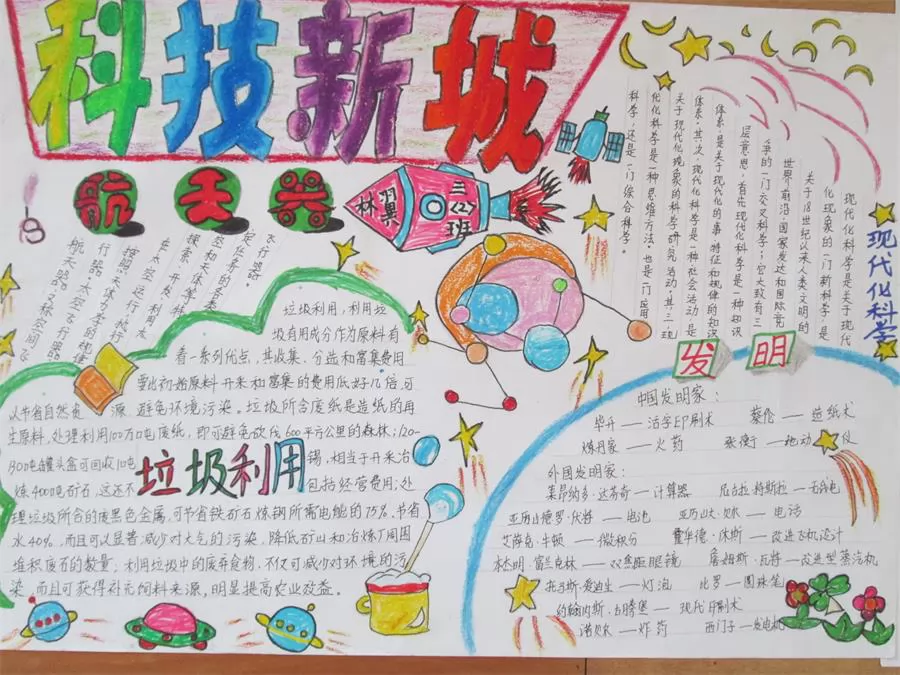 科技新城
航天器
林翼
三(2)班
航天器,又称空间飞
行器、太空飞行器
按照天体力学的规律
在太空运行,执行
探索、开发、利用太
空和天体等特
定任务的各类
飞行器。
垃圾利用,利用垃
圾有用成分作为原料有
着一系列优点,其收集、分选和富集费用
要比初始原料开采和富集的费用低好几倍,可
以节省自然资源,避免环境污染。垃圾所含废纸是造纸的再
生原料,处理利用100万吨废纸,即可避免砍伐600平方公里的森林;120-
130吨罐头盒可回收10吨锡,相当于开采冶
炼400吨矿石,这还不包括经营费用;处
垃圾利用
理垃圾所含的废黑色金属,可节省铁矿石炼钢所需电能的75%,节省
水40%,而且可以显著减少对大气的污染,降低矿山和冶炼厂周围
堆积废石的数量;利用垃圾中的废弃食物,不仅可减少对环境的污
染,而且可获得补充饲料来源,明显提高农业效益。
现代化科学
现代化科学是关于现代
化现象的一门新科学,是
关于18世纪以来人类文明的
世界前沿、国家发达和国际竞
争的一门交叉科学;它大致有三
层意思,首先,现代化科学是一种知识
体系,是关于现代化的事、特征和规律的知
体系,其次,现代化科学是一种社会活动,是
关于现代化现象的科学研究活动,其三,现
代化科学是一种思维方法,也是一门应用
科学,还是一门综合科学。
发明
中国发明家:
毕升—活字印刷术 蔡伦—造纸术
炼丹家—火药 张衡—地动仪
外国发明家:
莱昂纳多·达芬奇—计算器 尼古拉·特斯拉—无线电
亚历山德罗·伏特—电池 亚历山大·贝尔—电话
艾萨克·牛顿—微积分 霍华德·休斯—改进飞机设计
本杰明·富兰克林—双焦距眼镜 詹姆斯·瓦特—改进型蒸汽机
托马斯·爱迪生—灯泡 比罗—圆珠笔
约翰内斯·古腾堡—现代印刷术
诺贝尔—炸药 西门子—发电机